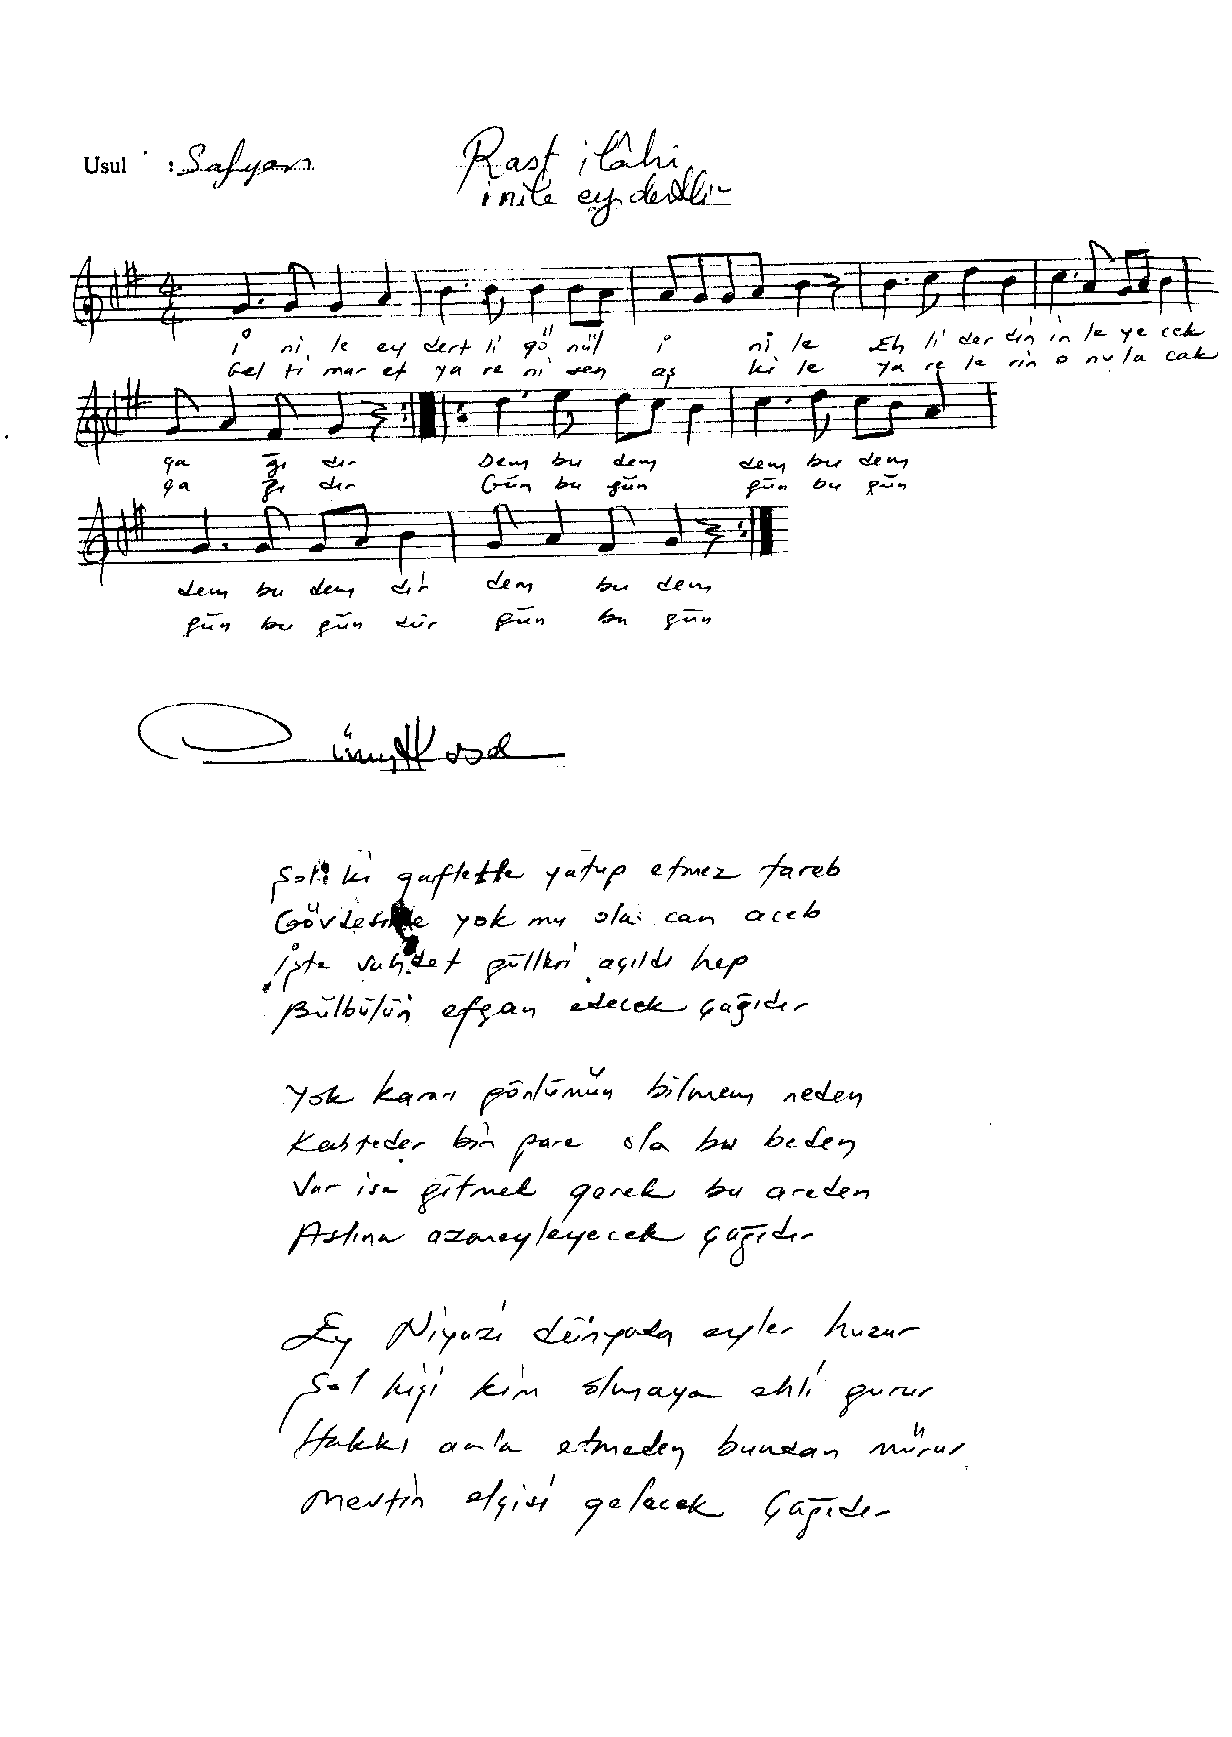 Usul : Sofyan
Rast ilâhi
inile ey dertli
4/4
i ni le ey dert li gö nül i ni le Eh li der din in le ye cek
Gel ti mar et ya re ni sen aş ki le ya re le rin o nu la cak
ça ğı dır Dem bu dem dem bu dem
ça ğı dır Gün bu gün gün bu gün
dem bu dem dir dem bu dem
gün bu gün dür gün bu gün
Şol ki gaflette yatup etmez tareb
Gövdesinde yok mu ola can aceb
işte vahdet gülleri açıldı hep
Bülbülün efgan edecek çağıdır
Yok kararı gönlümün bilmem neden
Kasteder bin pare ola bu beden
Var ise gitmek gerek bu areden
Aslına azmeyleyecek çağıdır
Ey Niyazi dünyada eyler huzur
Şol kişi kim olmaya ehli gurur
Hakkı anla etmeden bundan mürur
Mevtin elçisi gelecek çağıdır